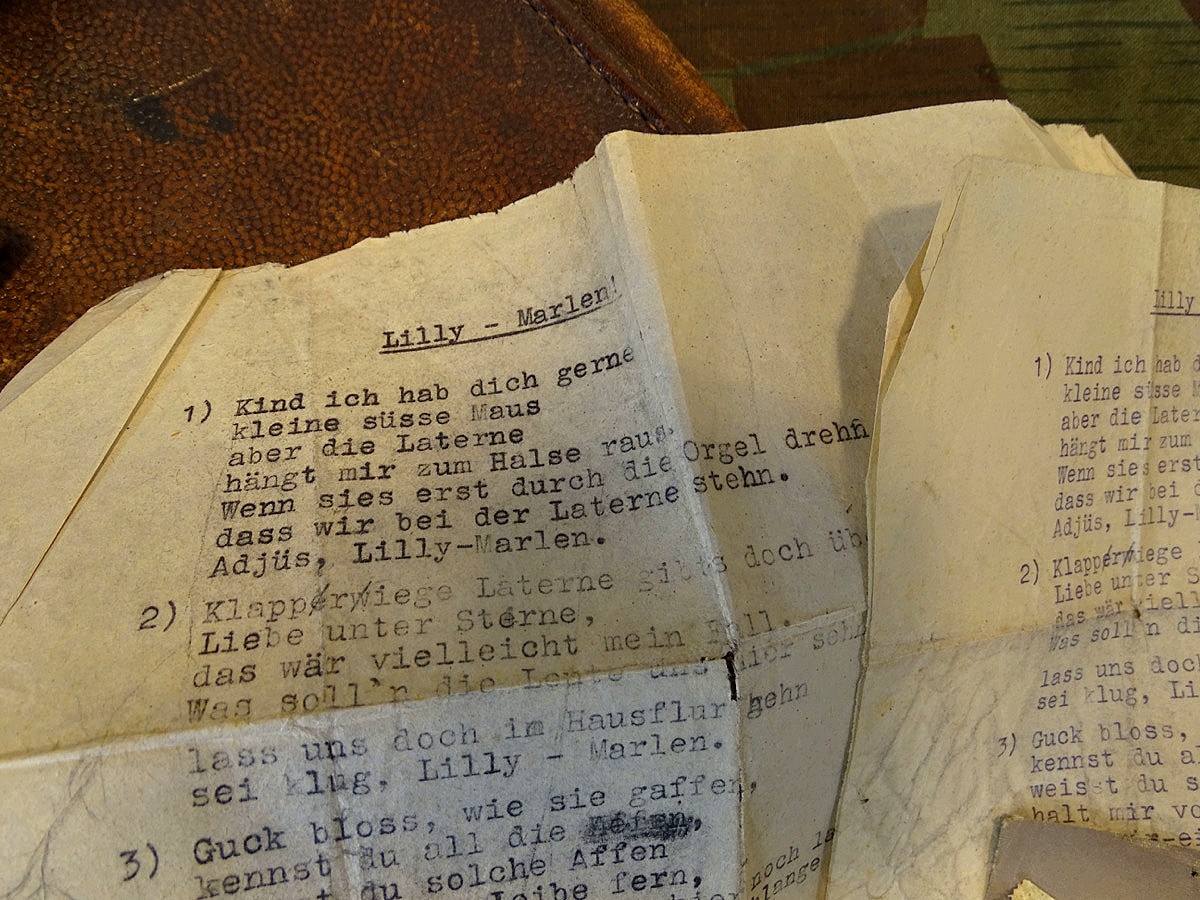 Lilly - Marlen!
1) Kind ich hab dich gerne
kleine süsse Maus
aber die Laterne
hängt mir zum Halse raus.
Wenn sies erst durch die Orgel drehn
dass wir bei der Laterne stehn.
Adjüs, Lilly-Marlen.
2) Klapperwiege Laterne gibts doch üb
Liebe unter Sterne,
das wär vielleicht mein Fall.
Was soll'n die Leute uns hier seh
lass uns doch im Hausflur gehn
sei klug, Lilly - Marlen.
3) Guck bloss, wie sie gaffen,
kennst du all die
du solche Affen
Leibe fern,
noch la
lange
Lilly
1) Kind ich hab d
kleine süsse M
aber die Later
hängt mir zum
Wenn sies erst
dass wir bei d
Adjüs, Lilly-
2) Klapperwiege
Liebe unter S
das wär viell
Was soll'n di
lass uns doch
sei klug, Li
3) Guck bloss,
kennst du a
weisst du s
halt mir vo